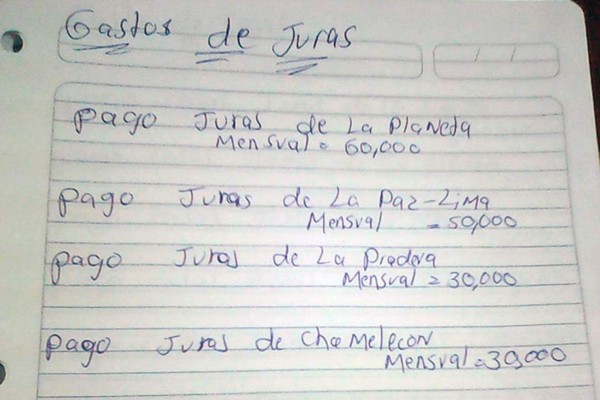 Gastos de Juras
pago Juras de La Planeta
Mensual = 60,000
pago Juras de La Paz-Lima
Mensual = 50,000
pago Juras de La Pradera
Mensual = 30,000
pago Juras de Chamelecon
Mensual = 30,000